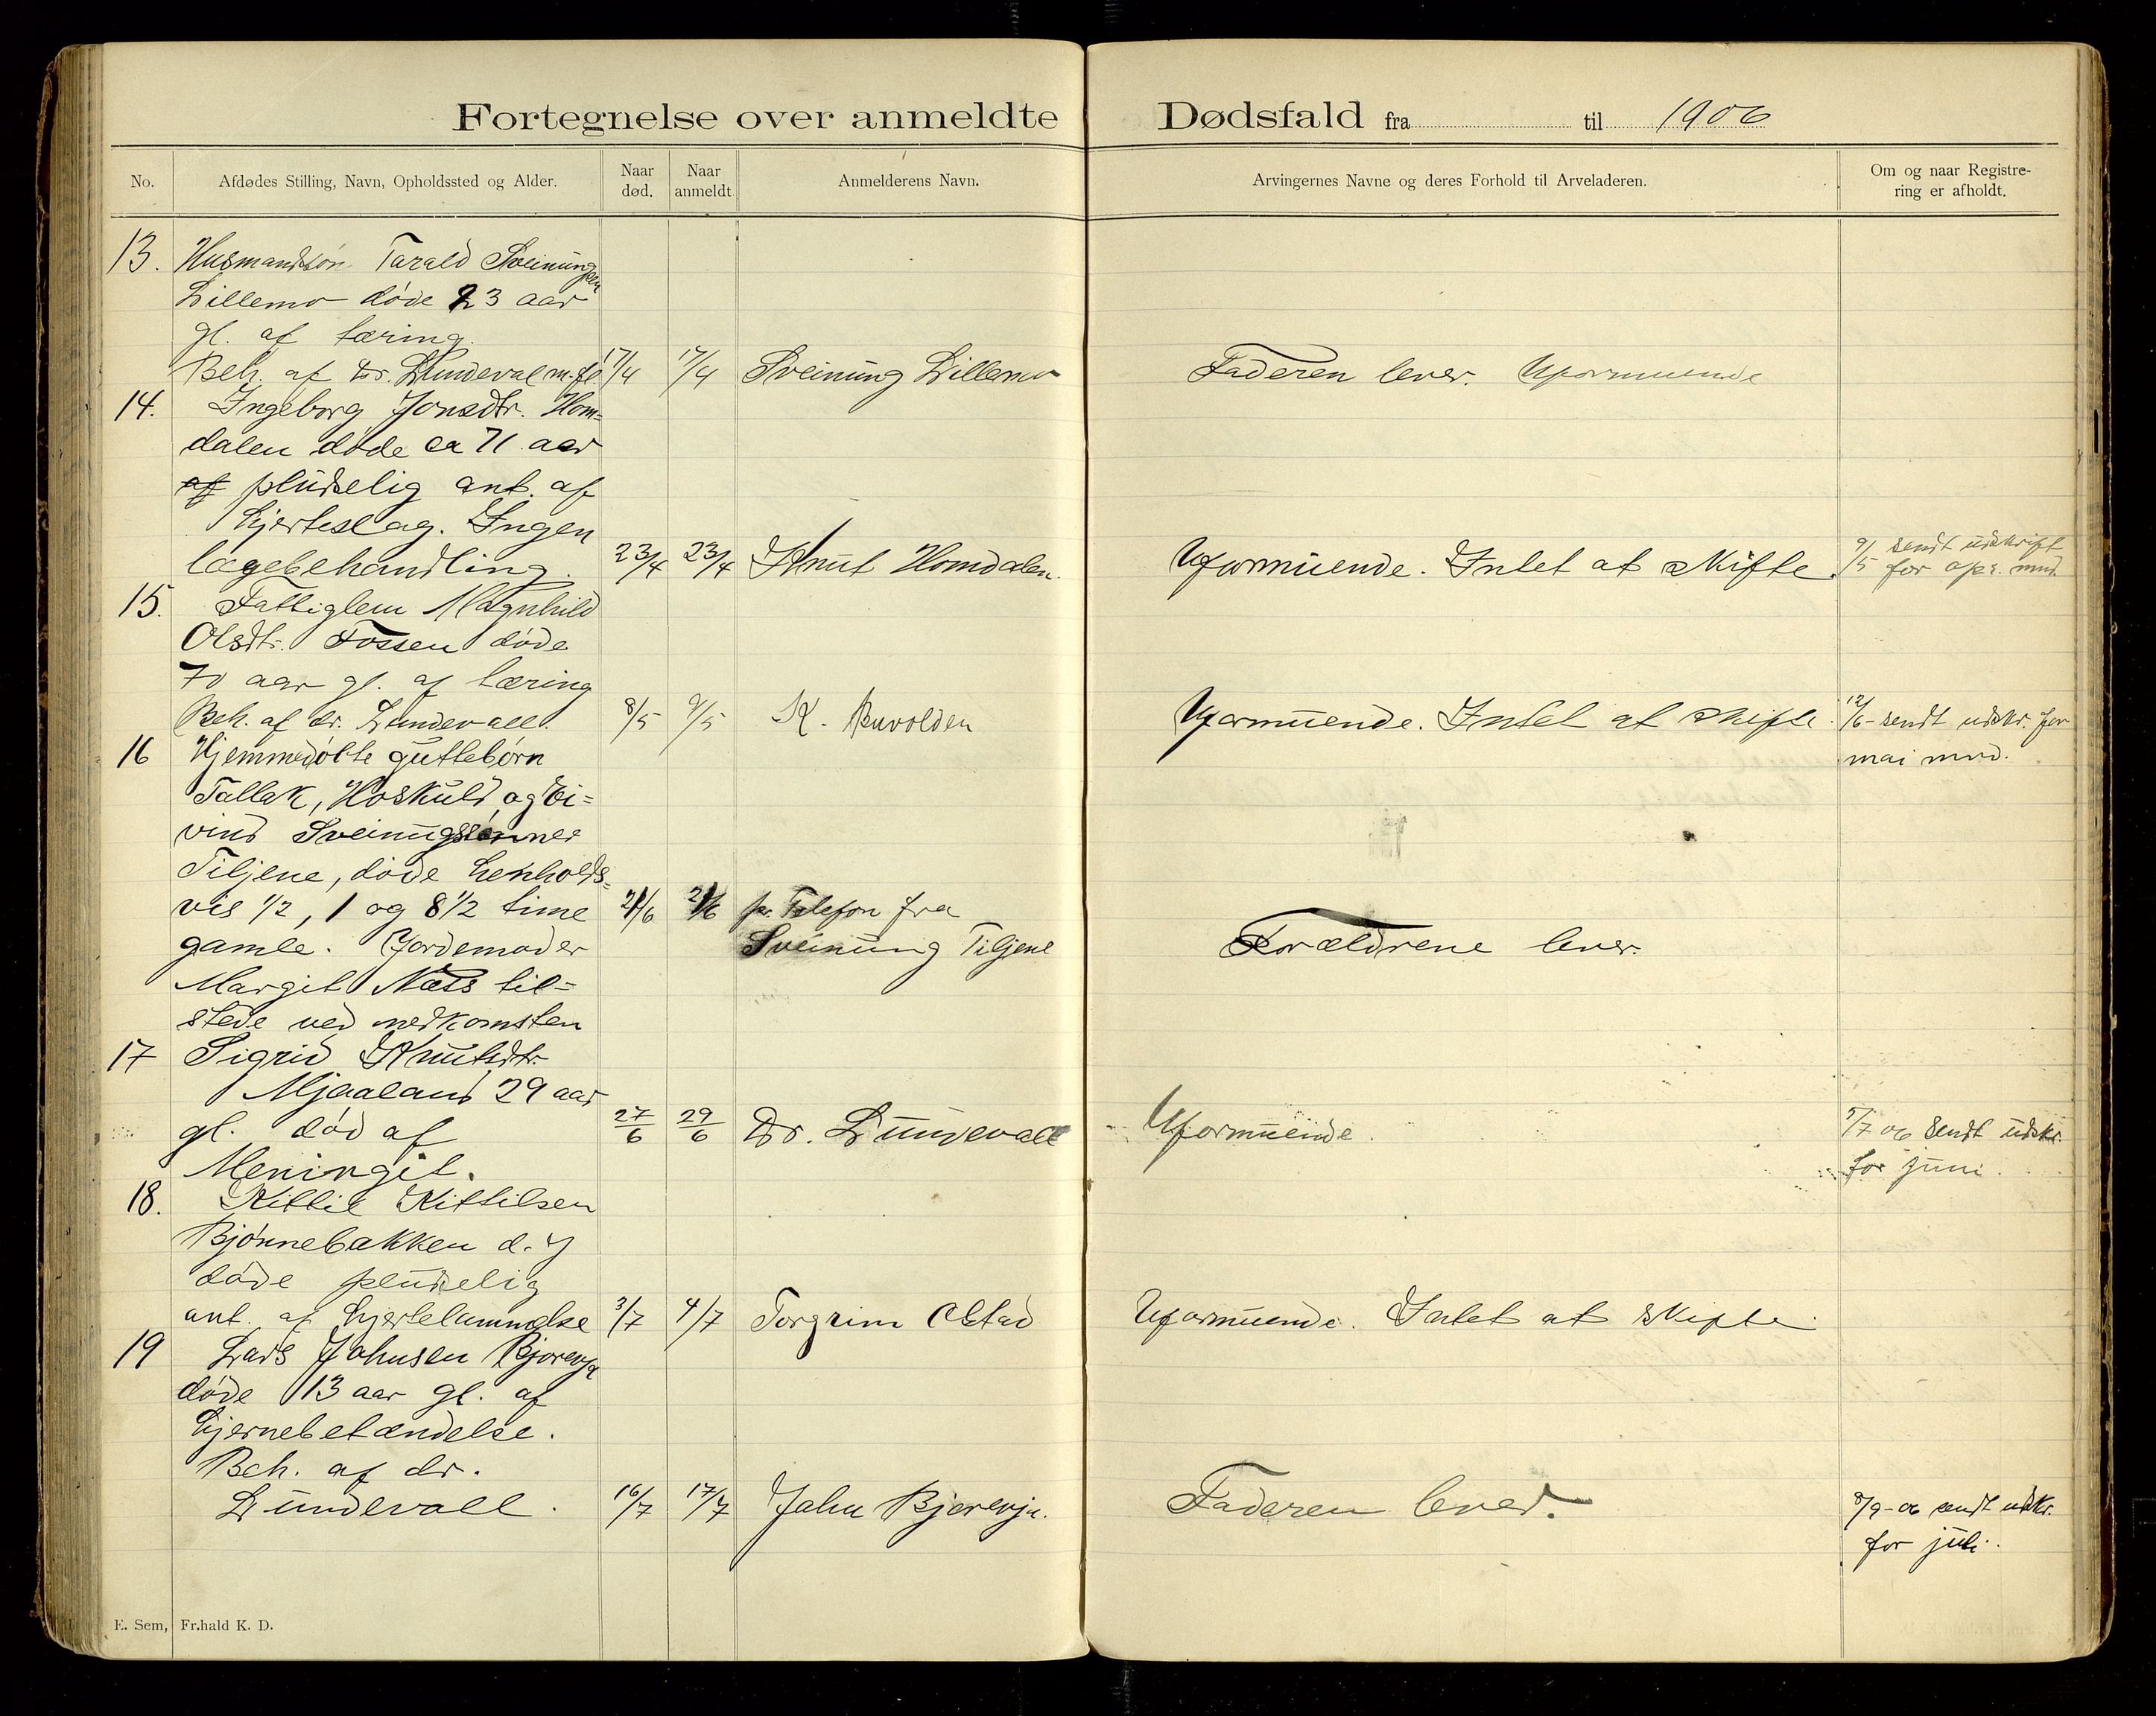 Fortegnelse over anmeldte Dødsfald fra til 1906
No. Afdødes Stilling, Navn, Opholdssted og Alder. Naar død. Naar anmeldt. Anmelderens Navn. Arvingernes Navne og deres Forhold til Arveladeren. Om og naar Registrering er afholdt.
13. Husmandssøn Tarald Sveinungsen
Lillemo døde 23 aar
gl. af tæring.
Beh. af Dr. Lundeval m. fl. 17/4 17/4 Sveinung Lillemo Faderen lever. Uformuende
14. Ingeborg Jonsdtr. Hom=
dalen døde ca 71 aar
af pludselig ant. af
hjerteslag. Ingen
lægebehandling. 23/4 23/4 Knut Homdalen. Uformuende. Intet at skifte. 9/5 sendt udskrift for apr. mnd.
15. Fattiglem Magnhild
Olsdtr. Fossen døde
70 aar gl. af tæring
Beh. af dr. Lundevall. 8/5 9/5 K. Buvolden Uformuende. Intet at skifte. 12/6 - sendt udskr. for
mai mnd.
16 Hjemmedøbte guttebørn
Tallak, Hoskuld og Ei=
vind Sveinugssønner
Tiljene, døde henholds=
vis 1/2, 1 og 8 1/2 time 21/6 21/6 pr. Telefon fra
gamle. Jordemoder Sveinung Tiljene Forældrene lever.
Margit Næss til=
stede ved nedkomsten
17 Sigrid Knutsdtr.
Mjaaland 29 aar
gl. død af 27/6 29/6 Dr. Lundevall Uformuende. 5/7 06 sendt udskr.
Meningit. for juni.
18. Kittil Kittilsen
Bjønnebakken d. y
døde pludselig
ant. af hjertelammelse 3/7 4/7 Torgrim Olstad Uformuende. Intet at skifte.
19 Lars Johnsen Bjorevja
døde 13 aar gl. af
hjernebetændelse.
Beh. af dr.
Lundevall. 16/7 17/7 John Bjorevja. Faderen lever. 8/9-06 sendt udskr.
for juli.
E. Sem, Fr.hald K. D.